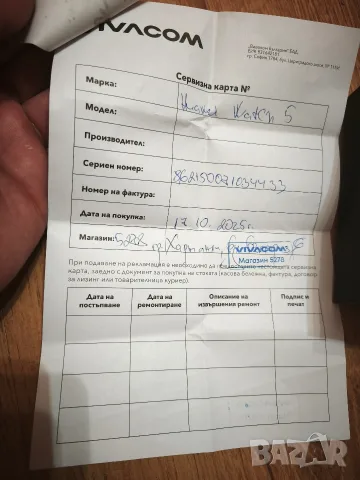 VIVACOM
Сервизна карта №
Марка: Huawei Watch 5
Модел:
Производител:
Сериен номер: 862150071034433
Номер на фактура:
Дата на покупка: 17.10.2025г
Магазин: 5278 гр.
VIVACOM
Магазин 5278
При подаване на рекламация е необходимо да предоставите настоящата сервизна
карта, заедно с документ за покупка на стоката (касова бележка, фактура, договор
за лизинг или товарителница куриер).
Дата на постъпване
Дата на ремонтиране
Описание на извършения ремонт
Подпис и печат
BAZAR